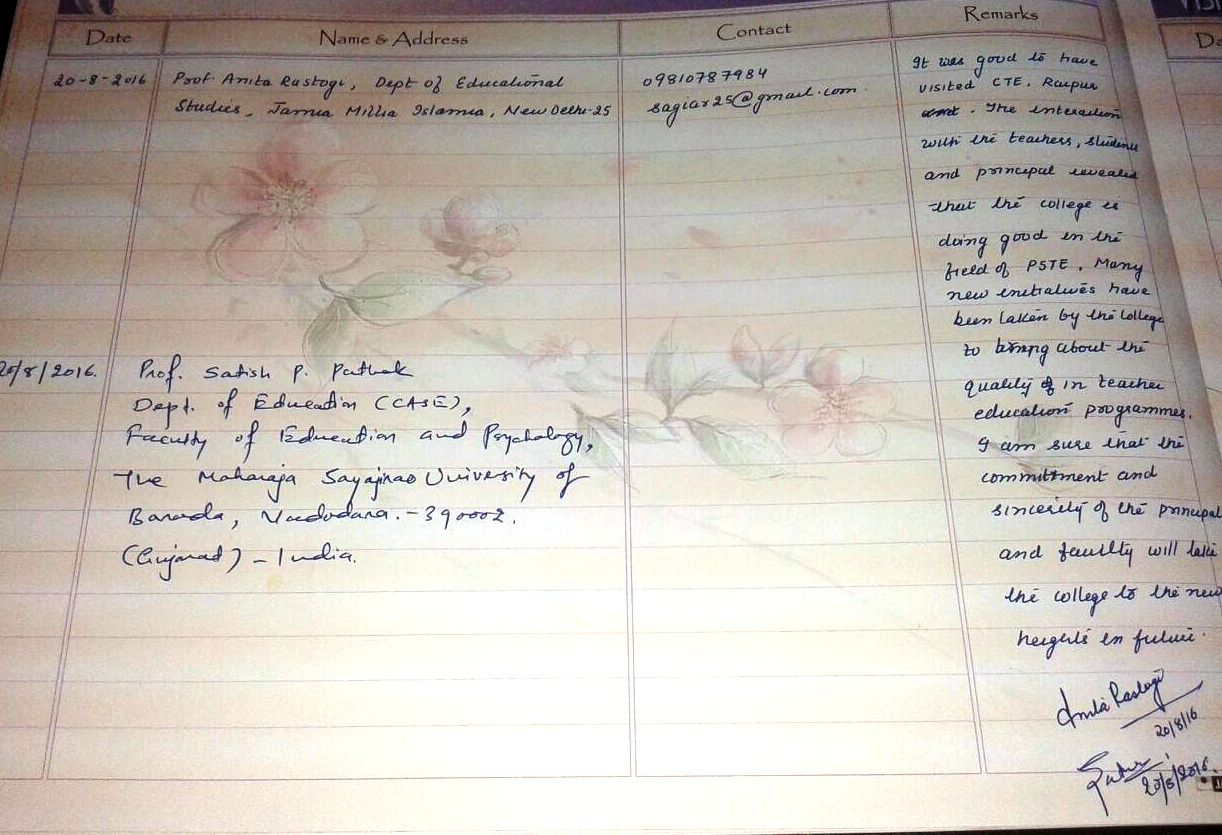 Date
Name & Address
Contact
Remarks
20-8-2016
Prof. Anita Rastogi, Dept of Educational
Studies, Jamia Millia Islamia, New Delhi-25
09810787984
sagiar25@gmail.com.
It was good to have
visited CTE, Raipur
. The interaction
with the teachers, students
and principal revealed
that the college is
doing good in the
field of PSTE. Many
new initiatives have
been taken by the college
to bring about the
quality in teacher
education programmes.
I am sure that the
committment and
sincerity of the principal
and faculty will take
the college to the new
heights in future.
Anita Rastogi
20/8/16
20/8/2016.
Prof. Satish P. Pathak
Dept. of Education (CASE),
Faculty of Education and Psychology,
The Maharaja Sayajirao University of
Baroda, Vadodara.-390002.
(Gujarat) - India.
20/8/2016.